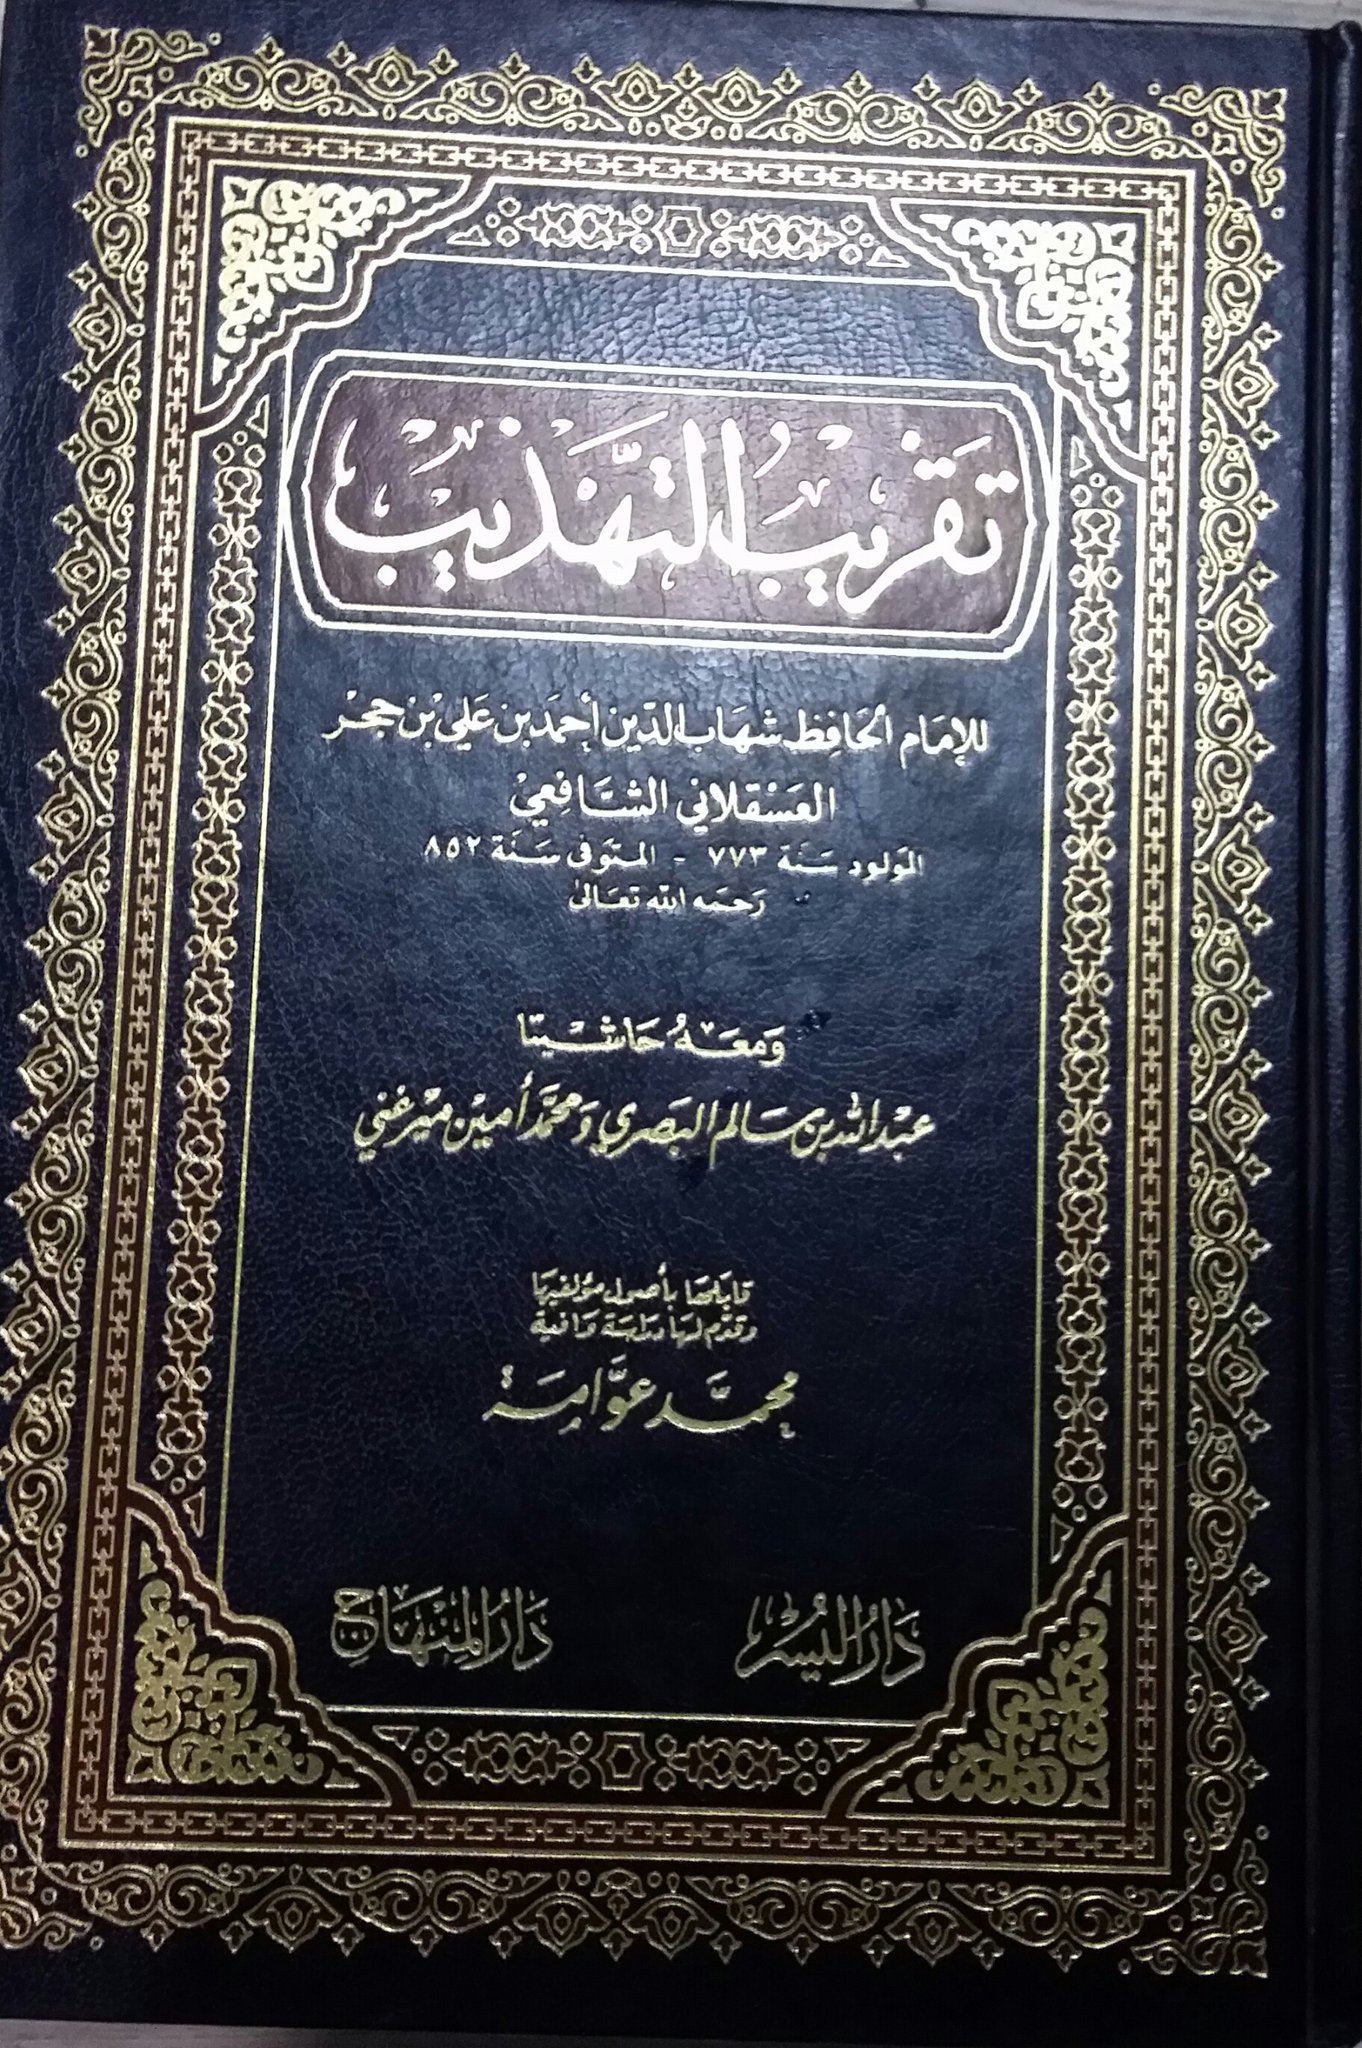 تقريب التهذيب
للإمام الحافظ شهاب الدين أحمد بن علي بن حجر
العسقلاني الشافعي
المولود سنة ٧٧٣ - المتوفى سنة ٨٥٢
رحمه الله تعالى
ومعه حاشيتا
عبد الله بن سالم البصري ومحمد أمين ميرغني
قابلها بأصول مؤلفيها
وقدم لها دراسة وافية
محمد عوامة
دار اليسر
دار المنهاج